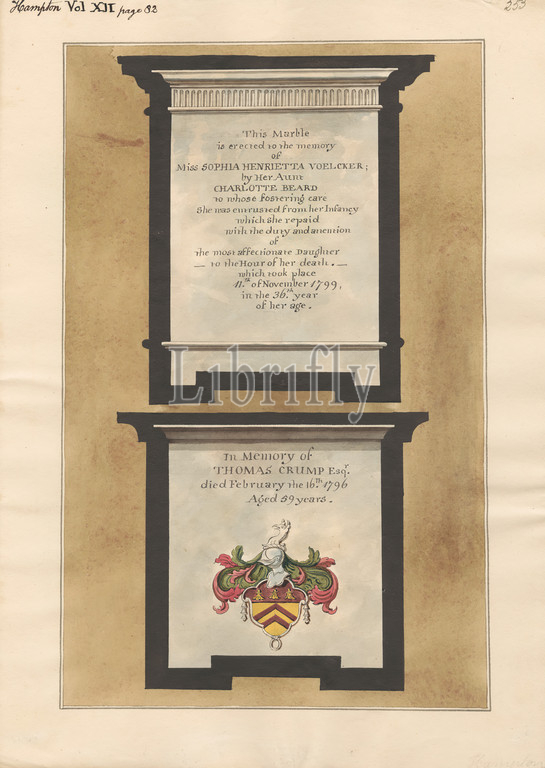 Hampton Vol XII page 82
253
This Marble
is erected to the memory
of
Miss SOPHIA HENRIETTA VOELCKER;
by Her Aunt
CHARLOTTE BEARD
to whose fostering care
She was entrusted from her Infancy
which she repaid
with the duty and attention
of
the most affectionate Daughter
— to the Hour of her death. —
which took place
11.th of November 1799,
in the 36.th year
of her age.
Librifly
In Memory of
THOMAS CRUMP Esqr.
died February the 16.th 1796
Aged 59 years.